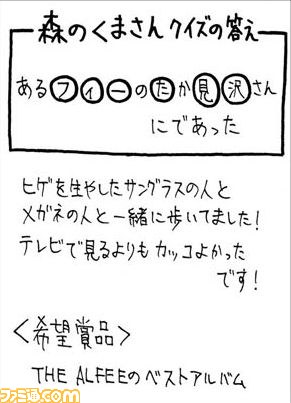 森のくまさん クイズの答え
あるフィーのたか見沢さん
にであった
ヒゲを生やしたサングラスの人と
メガネの人と一緒に歩いてました!
テレビで見るよりもカッコよかった
です!
<希望賞品>
THE ALFEEのベストアルバム
ファミ通.com